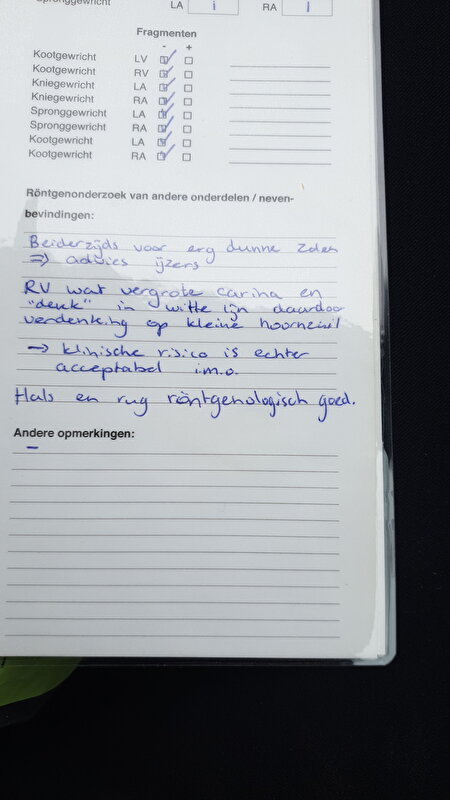 Spronggewricht LA i RA 1
Fragmenten
- +
Kootgewricht LV
Kootgewricht RV
Kniegewricht LA
Kniegewricht RA
Spronggewricht LA
Spronggewricht RA
Kootgewricht LA
Kootgewricht RA
Röntgenonderzoek van andere onderdelen / neven-
bevindingen:
Beiderzijds voor erg dunne zolen
=> advies ijzers
RV wat vergrote carina en
"deuk" in witte lijn daardoor
verdenking op kleine hoornzuil
-> klinische risico is echter
acceptabel i.m.o.
Hals en rug röntgenologisch goed.
Andere opmerkingen:
-